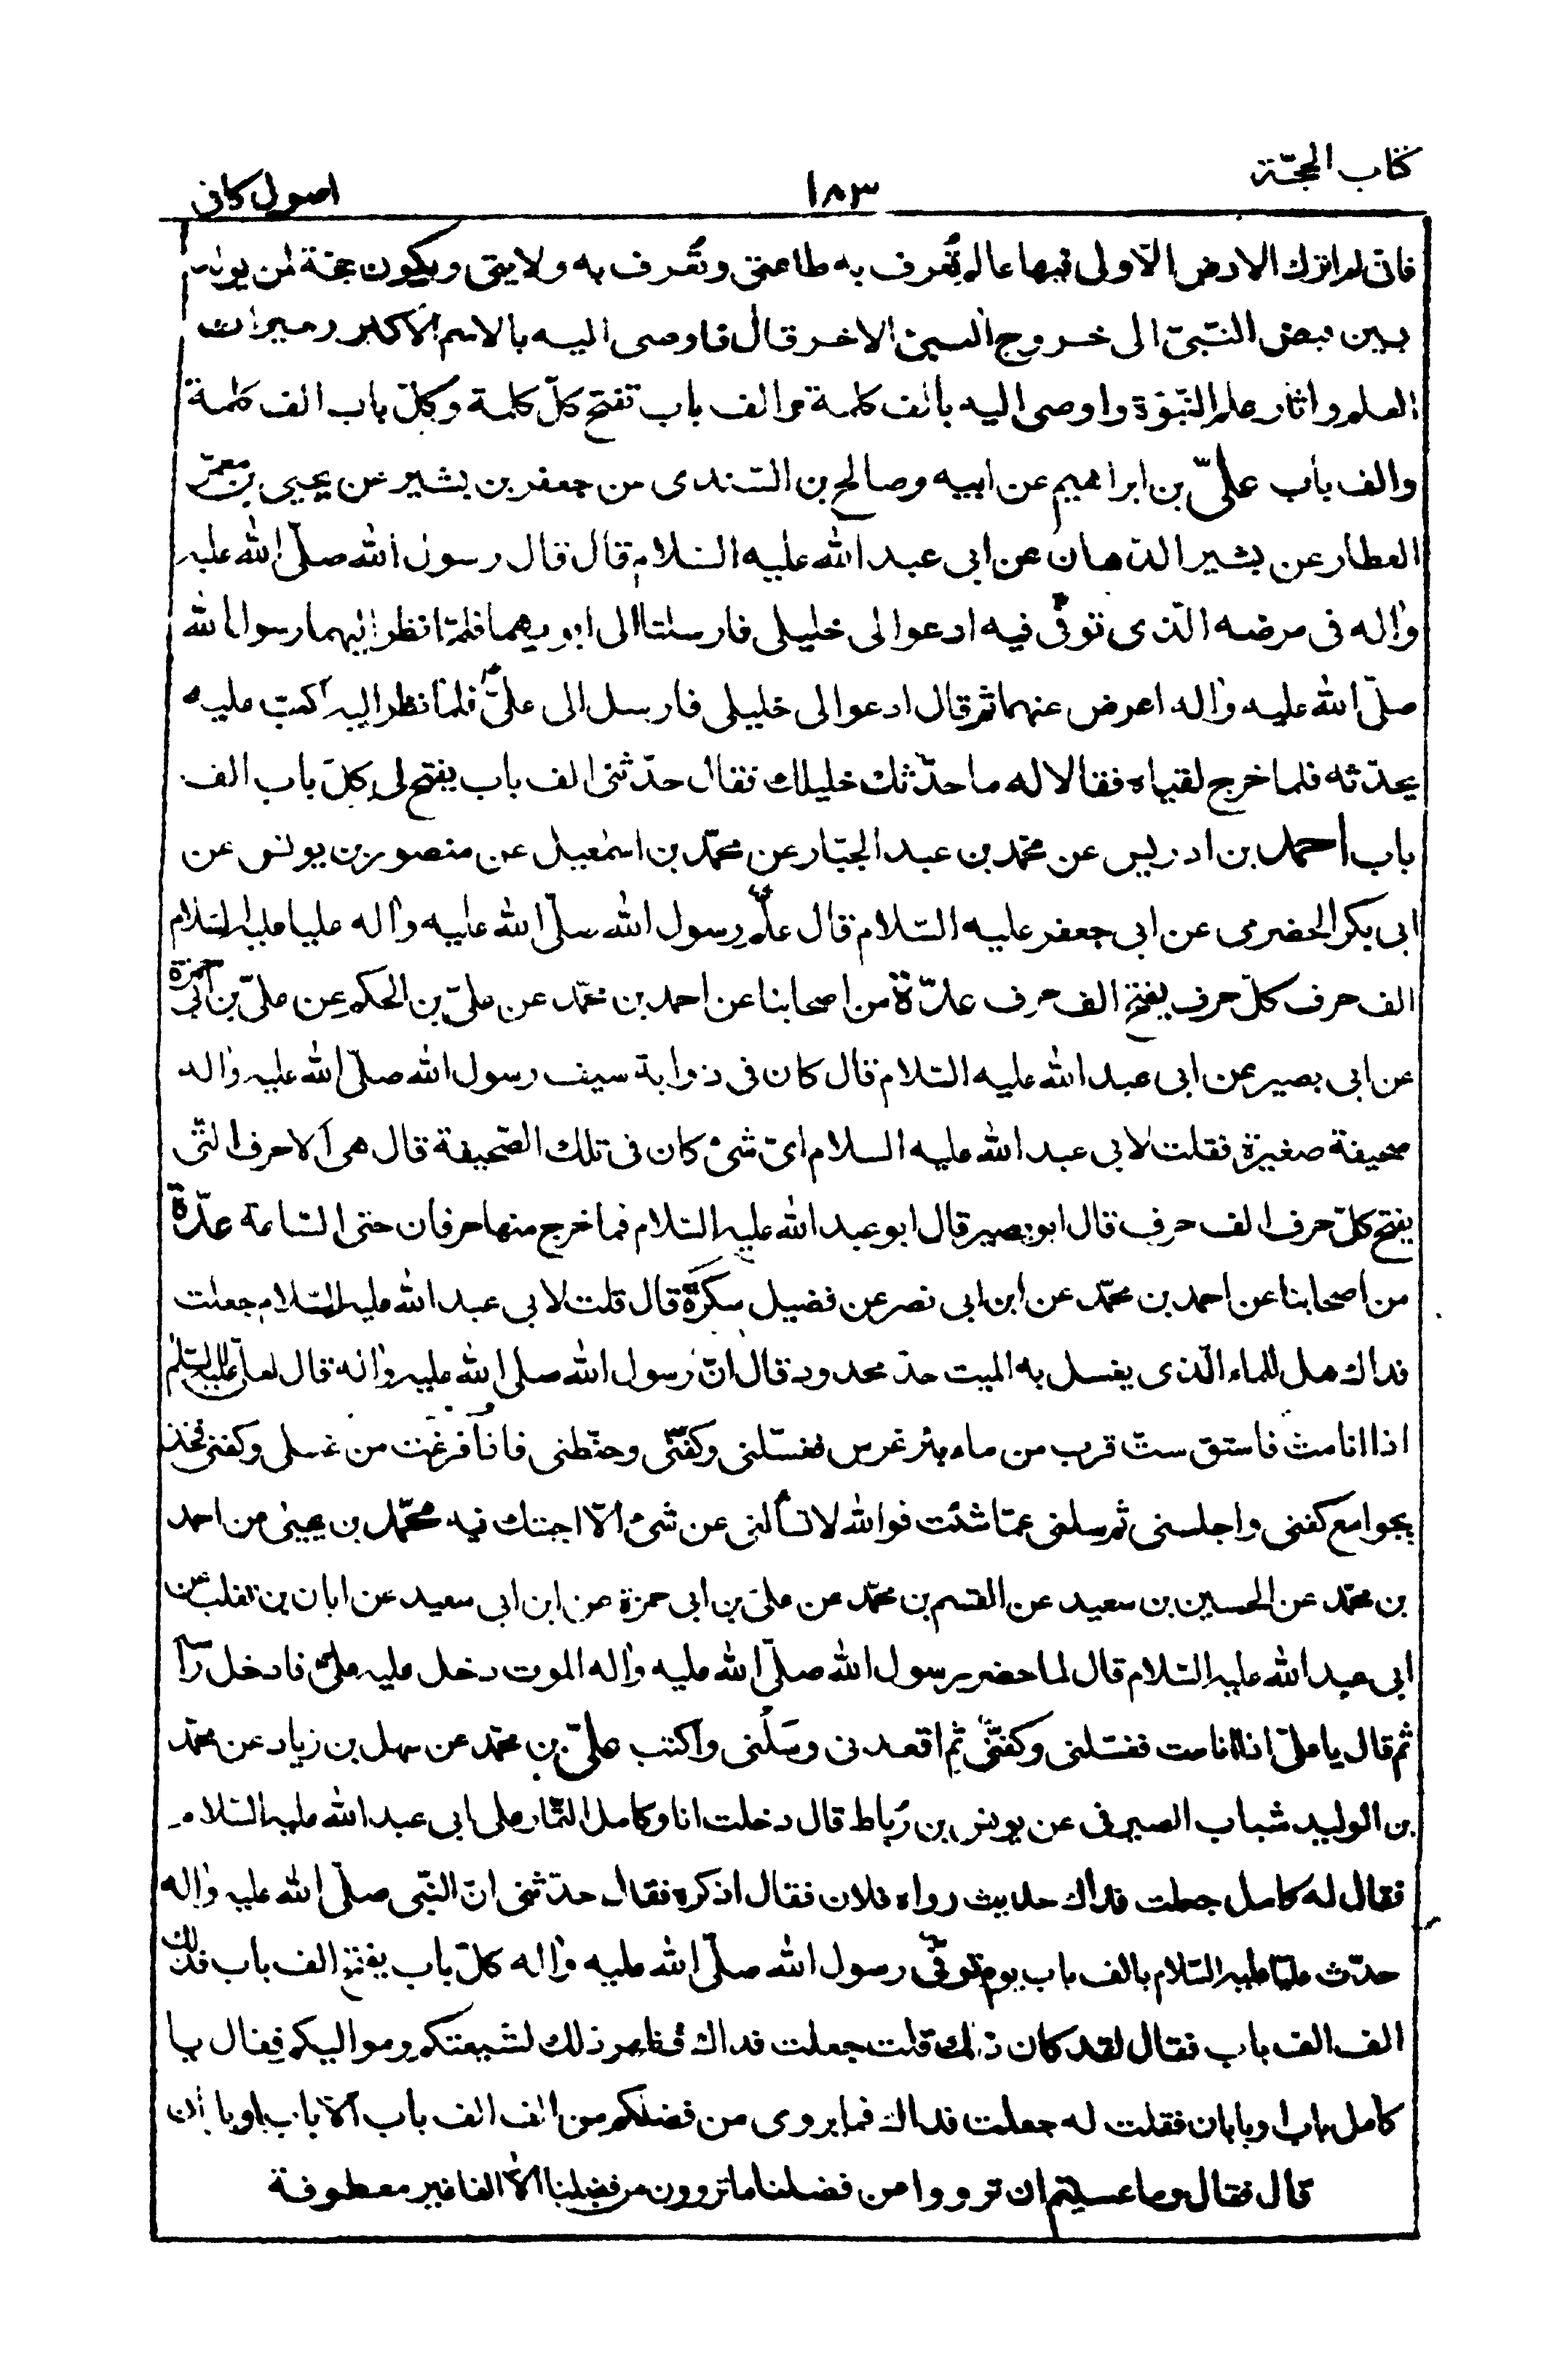 كتاب الحجّة
١٨٣
اصول كافى
فانّى لم اترك الارض الّا ولى فيها عالم تُعرف به طاعتى وتُعرف به ولايتى ويكون حجّة لمن يولد
بين قبض النّبىّ الى خروج النّبىّ الاخر قال فاوصى اليه بالاسم الاكبر وميراث
العلم واثار علم النّبوّة واوصى اليه بالف كلمة والف باب تفتح كلّ كلمة وكلّ باب الف كلمة
والف باب علىّ بن ابراهيم عن ابيه وصالح بن السّندى عن جعفر بن بشير عن يحيى بن معمّر
العطار عن بشير الدّهان عن ابى عبد الله عليه السّلام قال قال رسول الله صلّى الله عليه
واله فى مرضه الّذى توفّى فيه ادعوا لى خليلى فارسلتا الى ابويهما فلمّا نظر اليهما رسول الله
صلّى الله عليه واله اعرض عنهما ثم قال ادعوا لى خليلى فارسل الى علىّ فلمّا نظر اليه اكبّ عليه
يحدّثه فلما خرج لقياه فقالا له ما حدّثك خليلك فقال حدّثنى الف باب يفتح لى كلّ باب الف
باب احمد بن ادريس عن محمّد بن عبد الجبّار عن محمّد بن اسمعيل عن منصور بن يونس عن
ابى بكر الحضرمى عن ابى جعفر عليه السّلام قال علّم رسول الله صلّى الله عليه واله عليا عليه السّلام
الف حرف كلّ حرف يفتح الف حرف عدّة من اصحابنا عن احمد بن محمّد عن علىّ بن الحكم عن علىّ بن ابى حمزة
عن ابى بصير عن ابى عبد الله عليه السّلام قال كان فى ذوابة سيف رسول الله صلّى الله عليه واله
صحيفة صغيرة فقلت لابى عبد الله عليه السلام اىّ شىء كان فى تلك الصّحيفة قال هى الاحرف الّتى
يفتح كلّ حرف الف حرف قال ابو بصير قال ابو عبد الله عليه السّلام فما خرج منها حرفان حتى السّاعة عدّة
من اصحابنا عن احمد بن محمّد عن ابن ابى نصر عن فضيل سكرة قال قلت لابى عبد الله عليه السّلام جعلت
فداك هل للماء الّذى يغسل به الميت حدّ محدود قال انّ رسول الله صلى الله عليه واله قال لعلىّ عليه السّلم
اذا انا متّ فاستق ستّ قرب من ماء بئر غرس فغسّلنى وكفّنّى وحنّطنى فاذا فرغت من غسلى وكفنى فخذ
بجوامع كفنى واجلسنى ثم سلنى عمّا شئت فوالله لا تسألنى عن شىء الّا اجبتك فيه محمّد بن يحيى عن احمد
بن محمّد عن الحسين بن سعيد عن القسم بن محمّد عن علىّ بن ابى حمزة عن ابن ابى سعيد عن ابان بن تغلب عن
ابى عبد الله عليه السّلام قال لما حضر رسول الله صلّى الله عليه واله الموت دخل عليه علىّ فادخل رأسه
ثم قال يا علىّ اذا انا مت فغسّلنى وكفّنّى ثم اقعدنى وسَلْنى واكتب علىّ بن محمّد عن سهل بن زياد عن محمّد
بن الوليد شباب الصيرفى عن يونس بن رُباط قال دخلت انا وكامل التّمّار على ابى عبد الله عليه السّلام
فقال له كامل جعلت فداك حديث رواه فلان فقال اذكره فقال حدّثنى انّ النّبى صلّى الله عليه واله
حدّث عليّا عليه السّلام بالف باب يوم توفّى رسول الله صلّى الله عليه واله كلّ باب يفتح الف باب فذلك
الف الف باب فقال لقد كان ذلك قلت جعلت فداك فظهر ذلك لشيعتكم ومواليكم فقال يا
كامل باب او بابان فقلت له جعلت فداك فما يروى من فضلكم من الف الف باب الّا باب او بابان
قال فقال وما عسيتم ان ترووا من فضلنا ما تروون من فضلنا الّا الفا غير معطوفة